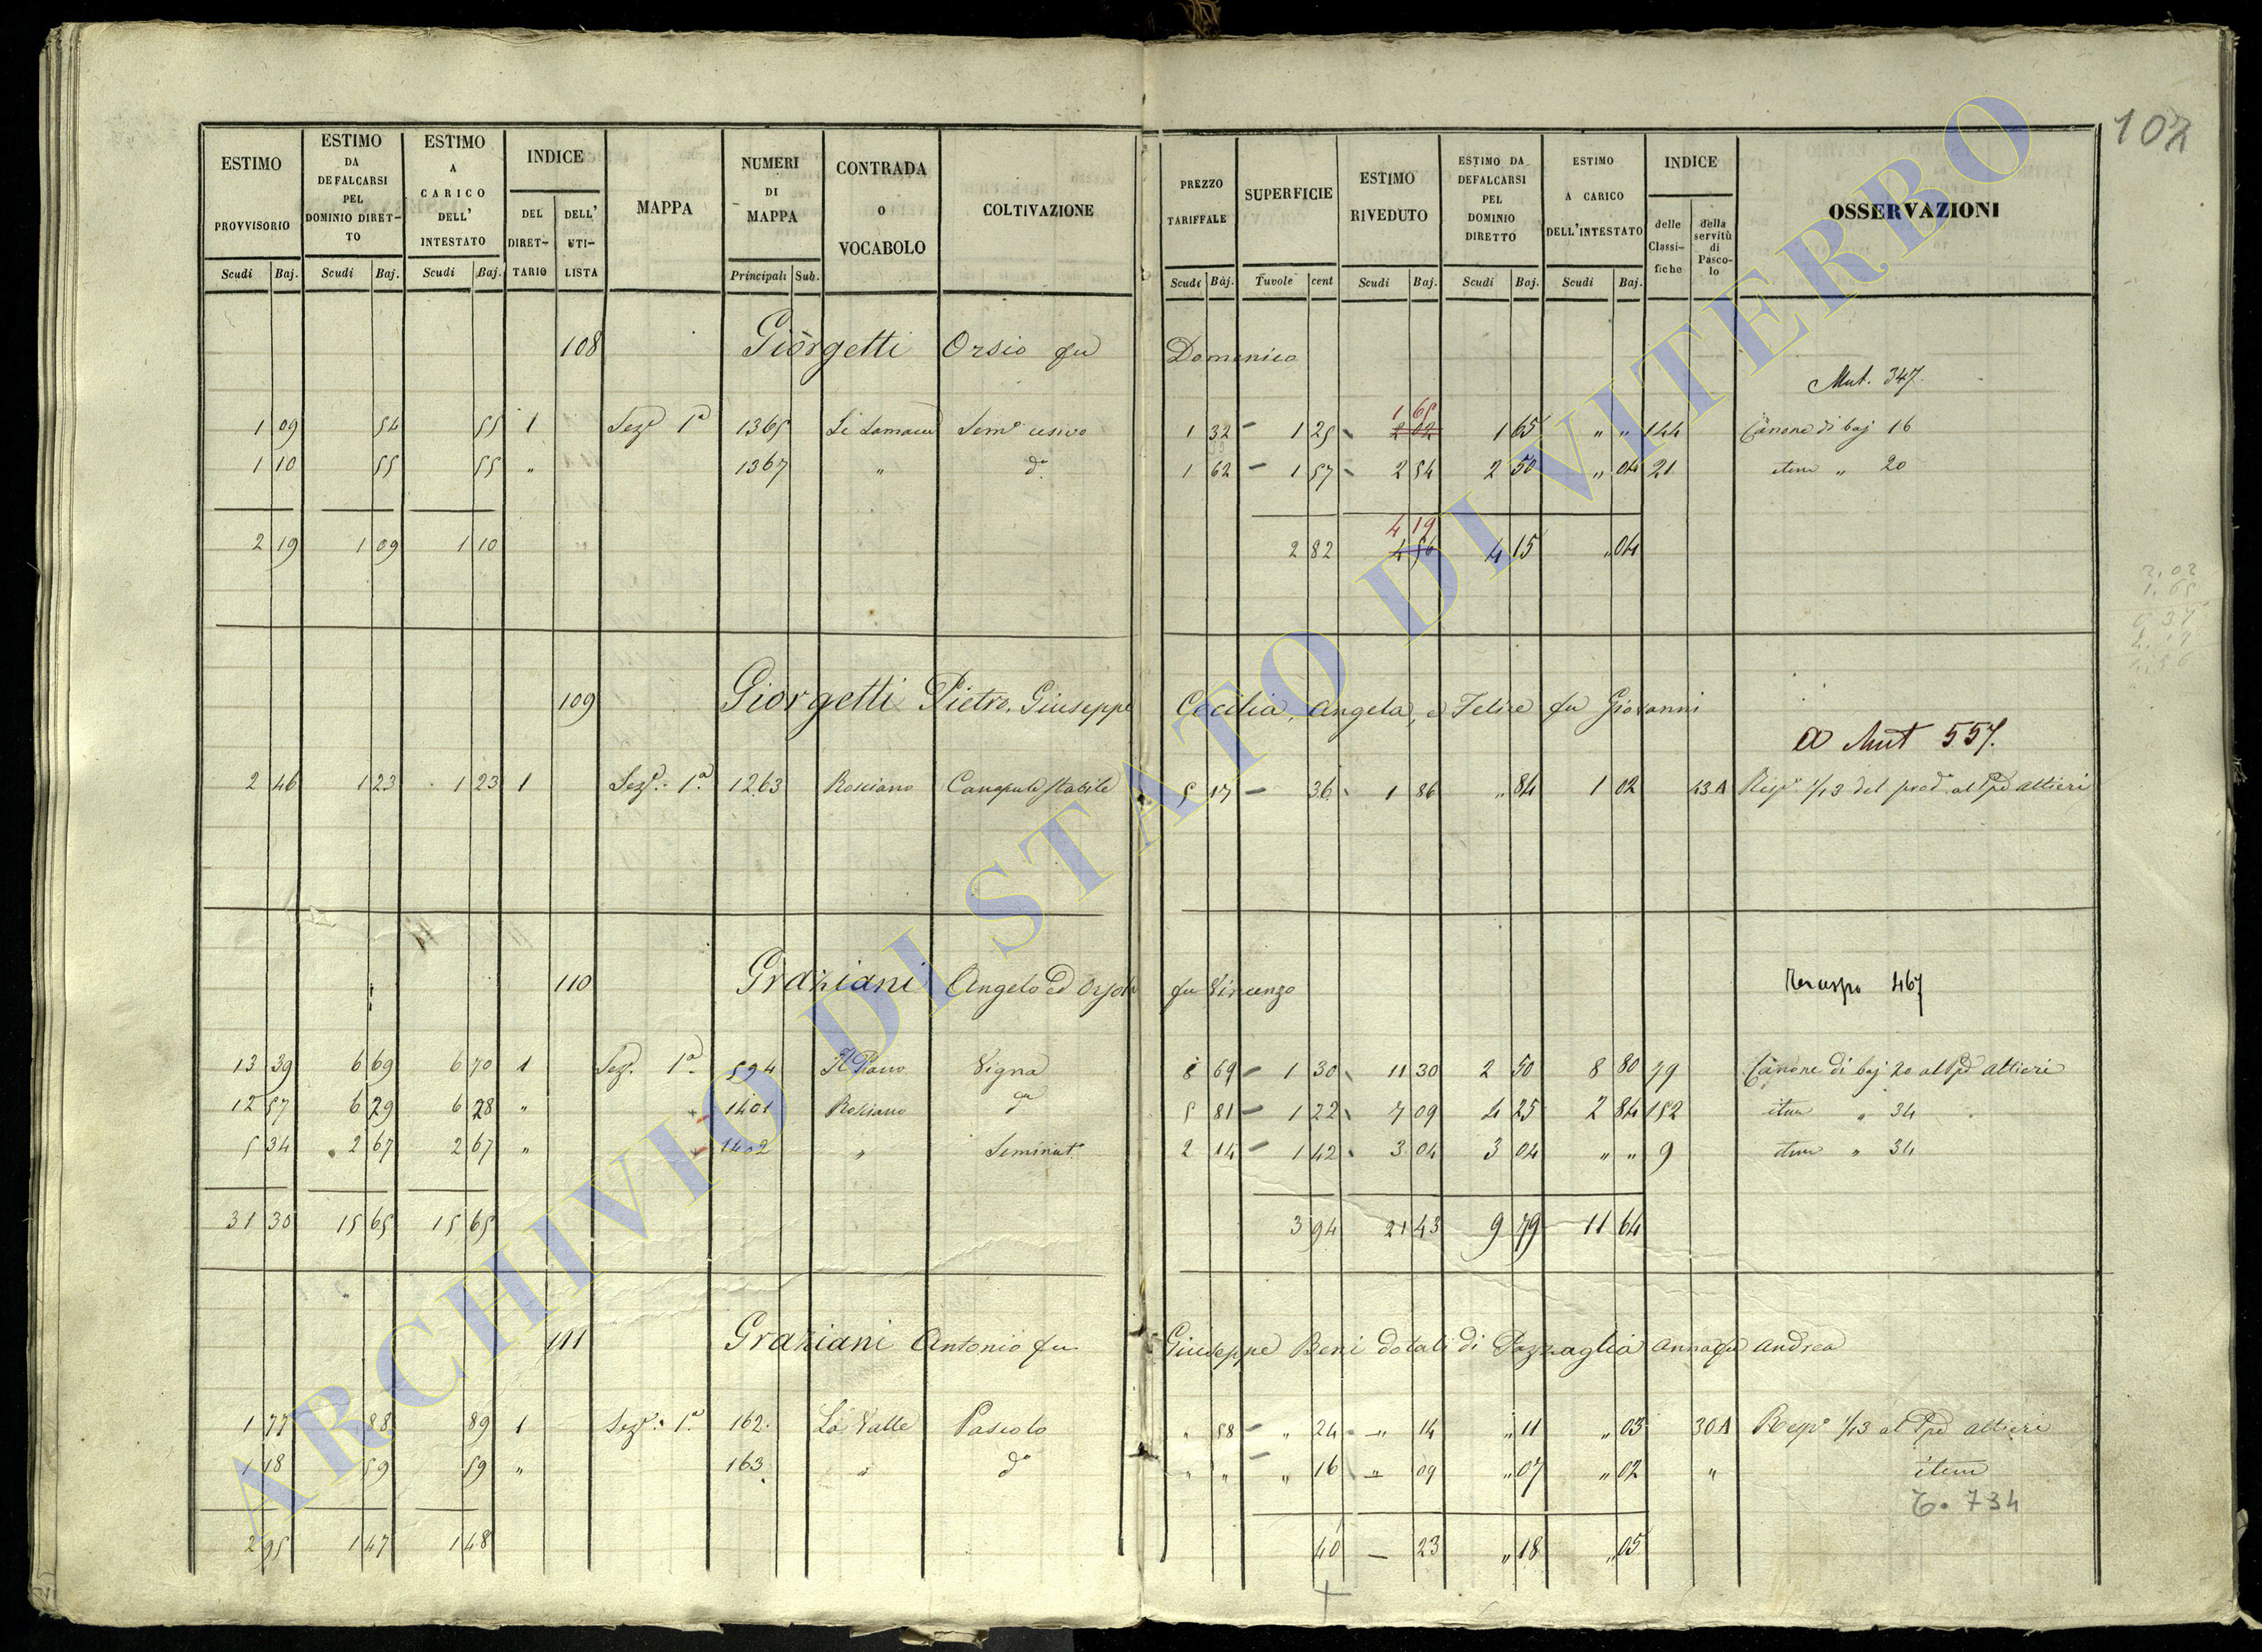 107
ESTIMO PROVVISORIO | ESTIMO DA DEFALCARSI PEL DOMINIO DIRETTO | ESTIMO A CARICO DELL' INTESTATO | INDICE | MAPPA | NUMERI DI MAPPA | CONTRADA O VOCABOLO | COLTIVAZIONE | PREZZO TARIFFALE | SUPERFICIE | ESTIMO RIVEDUTO | ESTIMO DA DEFALCARSI PEL DOMINIO DIRETTO | ESTIMO A CARICO DELL'INTESTATO | INDICE | OSSERVAZIONI
DEL DIRETTARIO | DELL' UTILISTA | delle Classifiche | della servitù di Pascolo
Scudi Baj. Scudi Baj. Scudi Baj. Principali Sub. Scudi Baj. Tavole cent Scudi Baj. Scudi Baj. Scudi Baj.
108 Giorgetti Orsio fu Domenico
Mut. 347.
1 09 54 55 1 Sez.e 1a 1365 Sem.o 1 32 1 25 2 02 1 65 1 65 " " 144 Canone di baj 16
1 10 55 55 " 1367 " d.o 1 62 1 57 2 54 2 50 " 04 21 item " 20
2 19 1 09 1 10 2 82 4 56 4 19 4 15 " 04
2.02
1.65
109 Giorgetti Pietro, Giuseppe Cecilia, Angela, e Felice fu Giovanni
Mut 557.
2 46 1 23 1 23 1 Sez.e 1a 1263 Rosciano Canapule Stabile 5 17 36 1 86 " 84 1 02 43A Risp.a 1/13 del prod.o al Ppe Altieri
110 Graziani Angelo ed Orsola fu Vincenzo
467
13 39 6 69 6 70 1 Sez. 1a 594 Il Piano Vigna 8 69 1 30 11 30 2 50 8 80 79 Canone di baj 20 al Ppe Altieri
12 57 6 29 6 28 " 1401 Rosciano d.a 5 81 1 22 7 09 4 25 2 84 152 item " 34
5 34 2 67 2 67 " 1402 " Seminat. 2 14 1 42 3 04 3 04 " " 9 item " 34
31 30 15 65 15 65 3 94 21 43 9 79 11 64
111 Graziani Antonio fu Giuseppe Beni dotali di Pazzaglia Anna fu Andrea
1 77 88 89 1 Sez.e 1a 162 La Valle Pascolo " 58 " 24 " 14 " 11 " 03 30A Risp.a 1/13 al Ppe Altieri
1 18 59 59 " 163 " d.o " " " 16 " 09 " 07 " 02 " item
734
2 95 1 47 1 48 40 — 23 " 18 " 05
ARCHIVIO DI STATO DI VITERBO